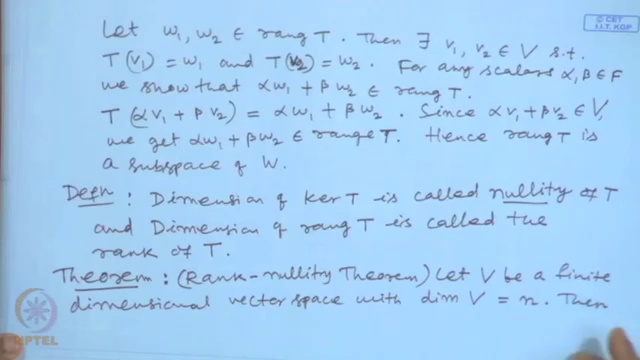 © CET
I.I.T. KGP
Let w₁, w₂ ∈ rang T. Then ∃ v₁, v₂ ∈ V s.t.
T(v₁) = w₁ and T(v₂) = w₂. For any scalars α, β ∈ F
we show that αw₁ + βw₂ ∈ rang T.
T(αv₁ + βv₂) = αw₁ + βw₂. Since αv₁ + βv₂ ∈ V,
we get αw₁ + βw₂ ∈ range T. Hence rang T is
a subspace of W.
Defn : Dimension of ker T is called nullity of T
and Dimension of rang T is called the
rank of T.
Theorem : (Rank-nullity Theorem) Let V be a finite
dimensional vector space with dim V = n. Then
NPTEL